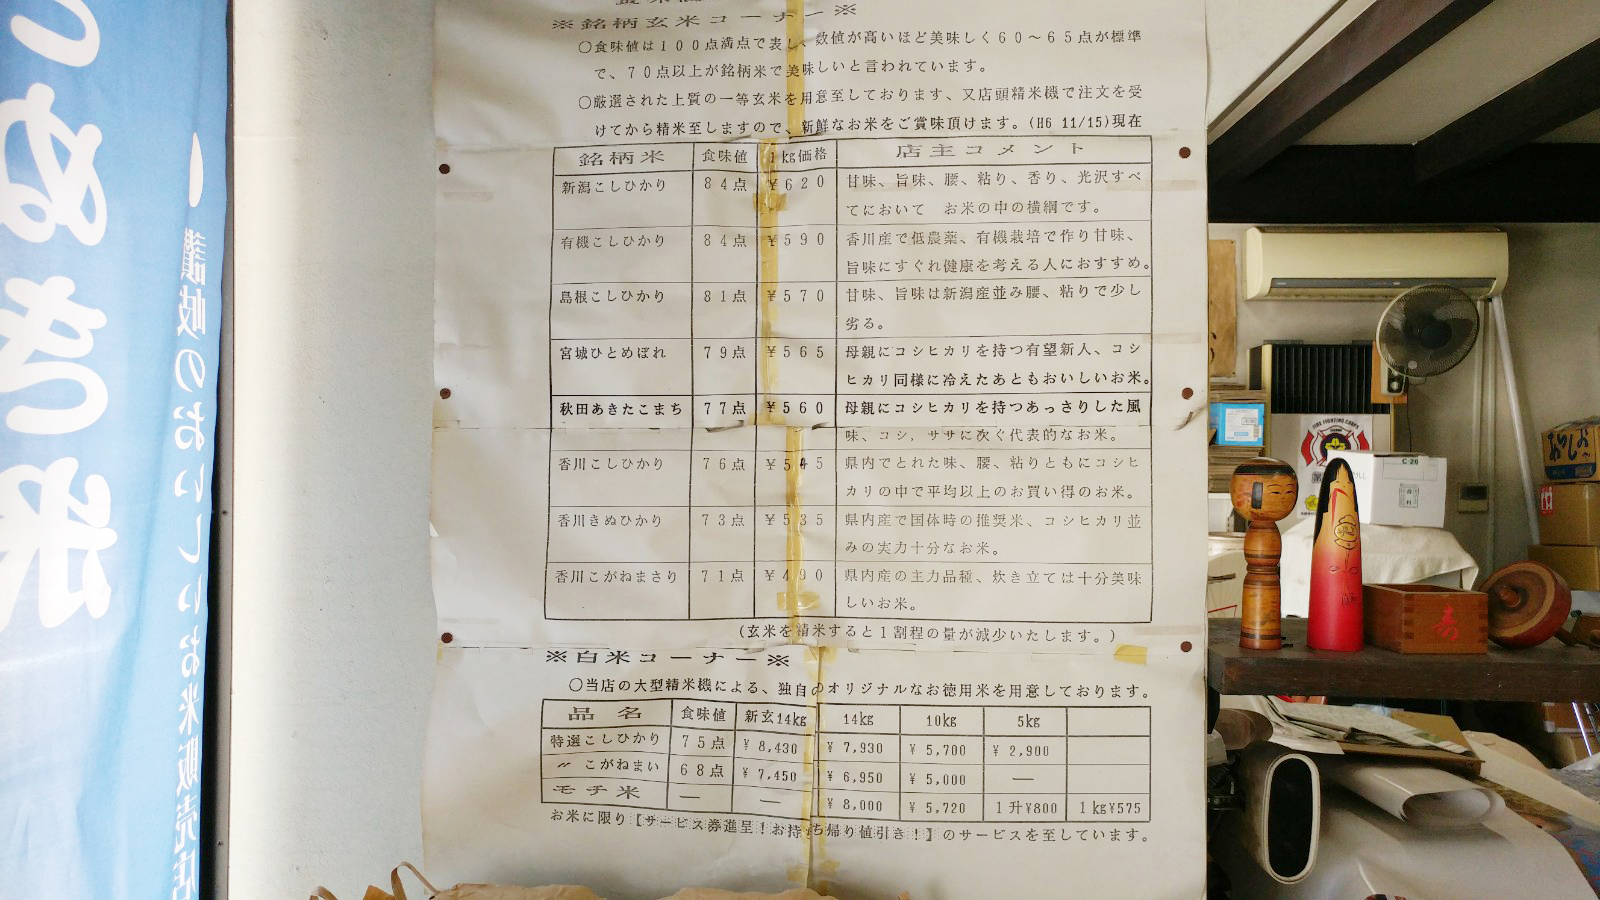 ※銘柄玄米コーナー※
○食味値は100点満点で表し、数値が高いほど美味しく60〜65点が標準
で、70点以上が銘柄米で美味しいと言われています。
○厳選された上質の一等玄米を用意至しております、又店頭精米機で注文を受
けてから精米至しますので、新鮮なお米をご賞味頂けます。(H6 11/15)現在
銘柄米 食味値 1kg価格 店主コメント
新潟こしひかり 84点 ¥620 甘味、旨味、腰、粘り、香り、光沢すべ
てにおいて お米の中の横綱です。
有機こしひかり 84点 ¥590 香川産で低農薬、有機栽培で作り甘味、
旨味にすぐれ健康を考える人におすすめ。
島根こしひかり 81点 ¥570 甘味、旨味は新潟産並み腰、粘りで少し
劣る。
宮城ひとめぼれ 79点 ¥565 母親にコシヒカリを持つ有望新人、コシ
ヒカリ同様に冷えたあともおいしいお米。
秋田あきたこまち 77点 ¥560 母親にコシヒカリを持つあっさりした風
味、コシ，ササに次ぐ代表的なお米。
香川こしひかり 76点 ¥545 県内でとれた味、腰、粘りともにコシヒ
カリの中で平均以上のお買い得のお米。
香川きぬひかり 73点 ¥535 県内産で国体時の推奨米、コシヒカリ並
みの実力十分なお米。
香川こがねまさり 71点 ¥490 県内産の主力品種、炊き立ては十分美味
しいお米。
(玄米を精米すると1割程の量が減少いたします。)
※白米コーナー※
○当店の大型精米機による、独自のオリジナルなお徳用米を用意しております。
品名 食味値 新玄14kg 14kg 10kg 5kg
特選こしひかり 75点 ¥8,430 ¥7,930 ¥5,700 ¥2,900
〃 こがねまい 68点 ¥7,450 ¥6,950 ¥5,000 —
モチ米 — — ¥8,000 ¥5,720 1升¥800 1kg¥575
お米に限り【サービス券進呈！お持ち帰り値引き！】のサービスを至しています。
讃岐のおいしいお米販売店
さぬき米
FIRE FIGHTING CORPS
C-20
寿